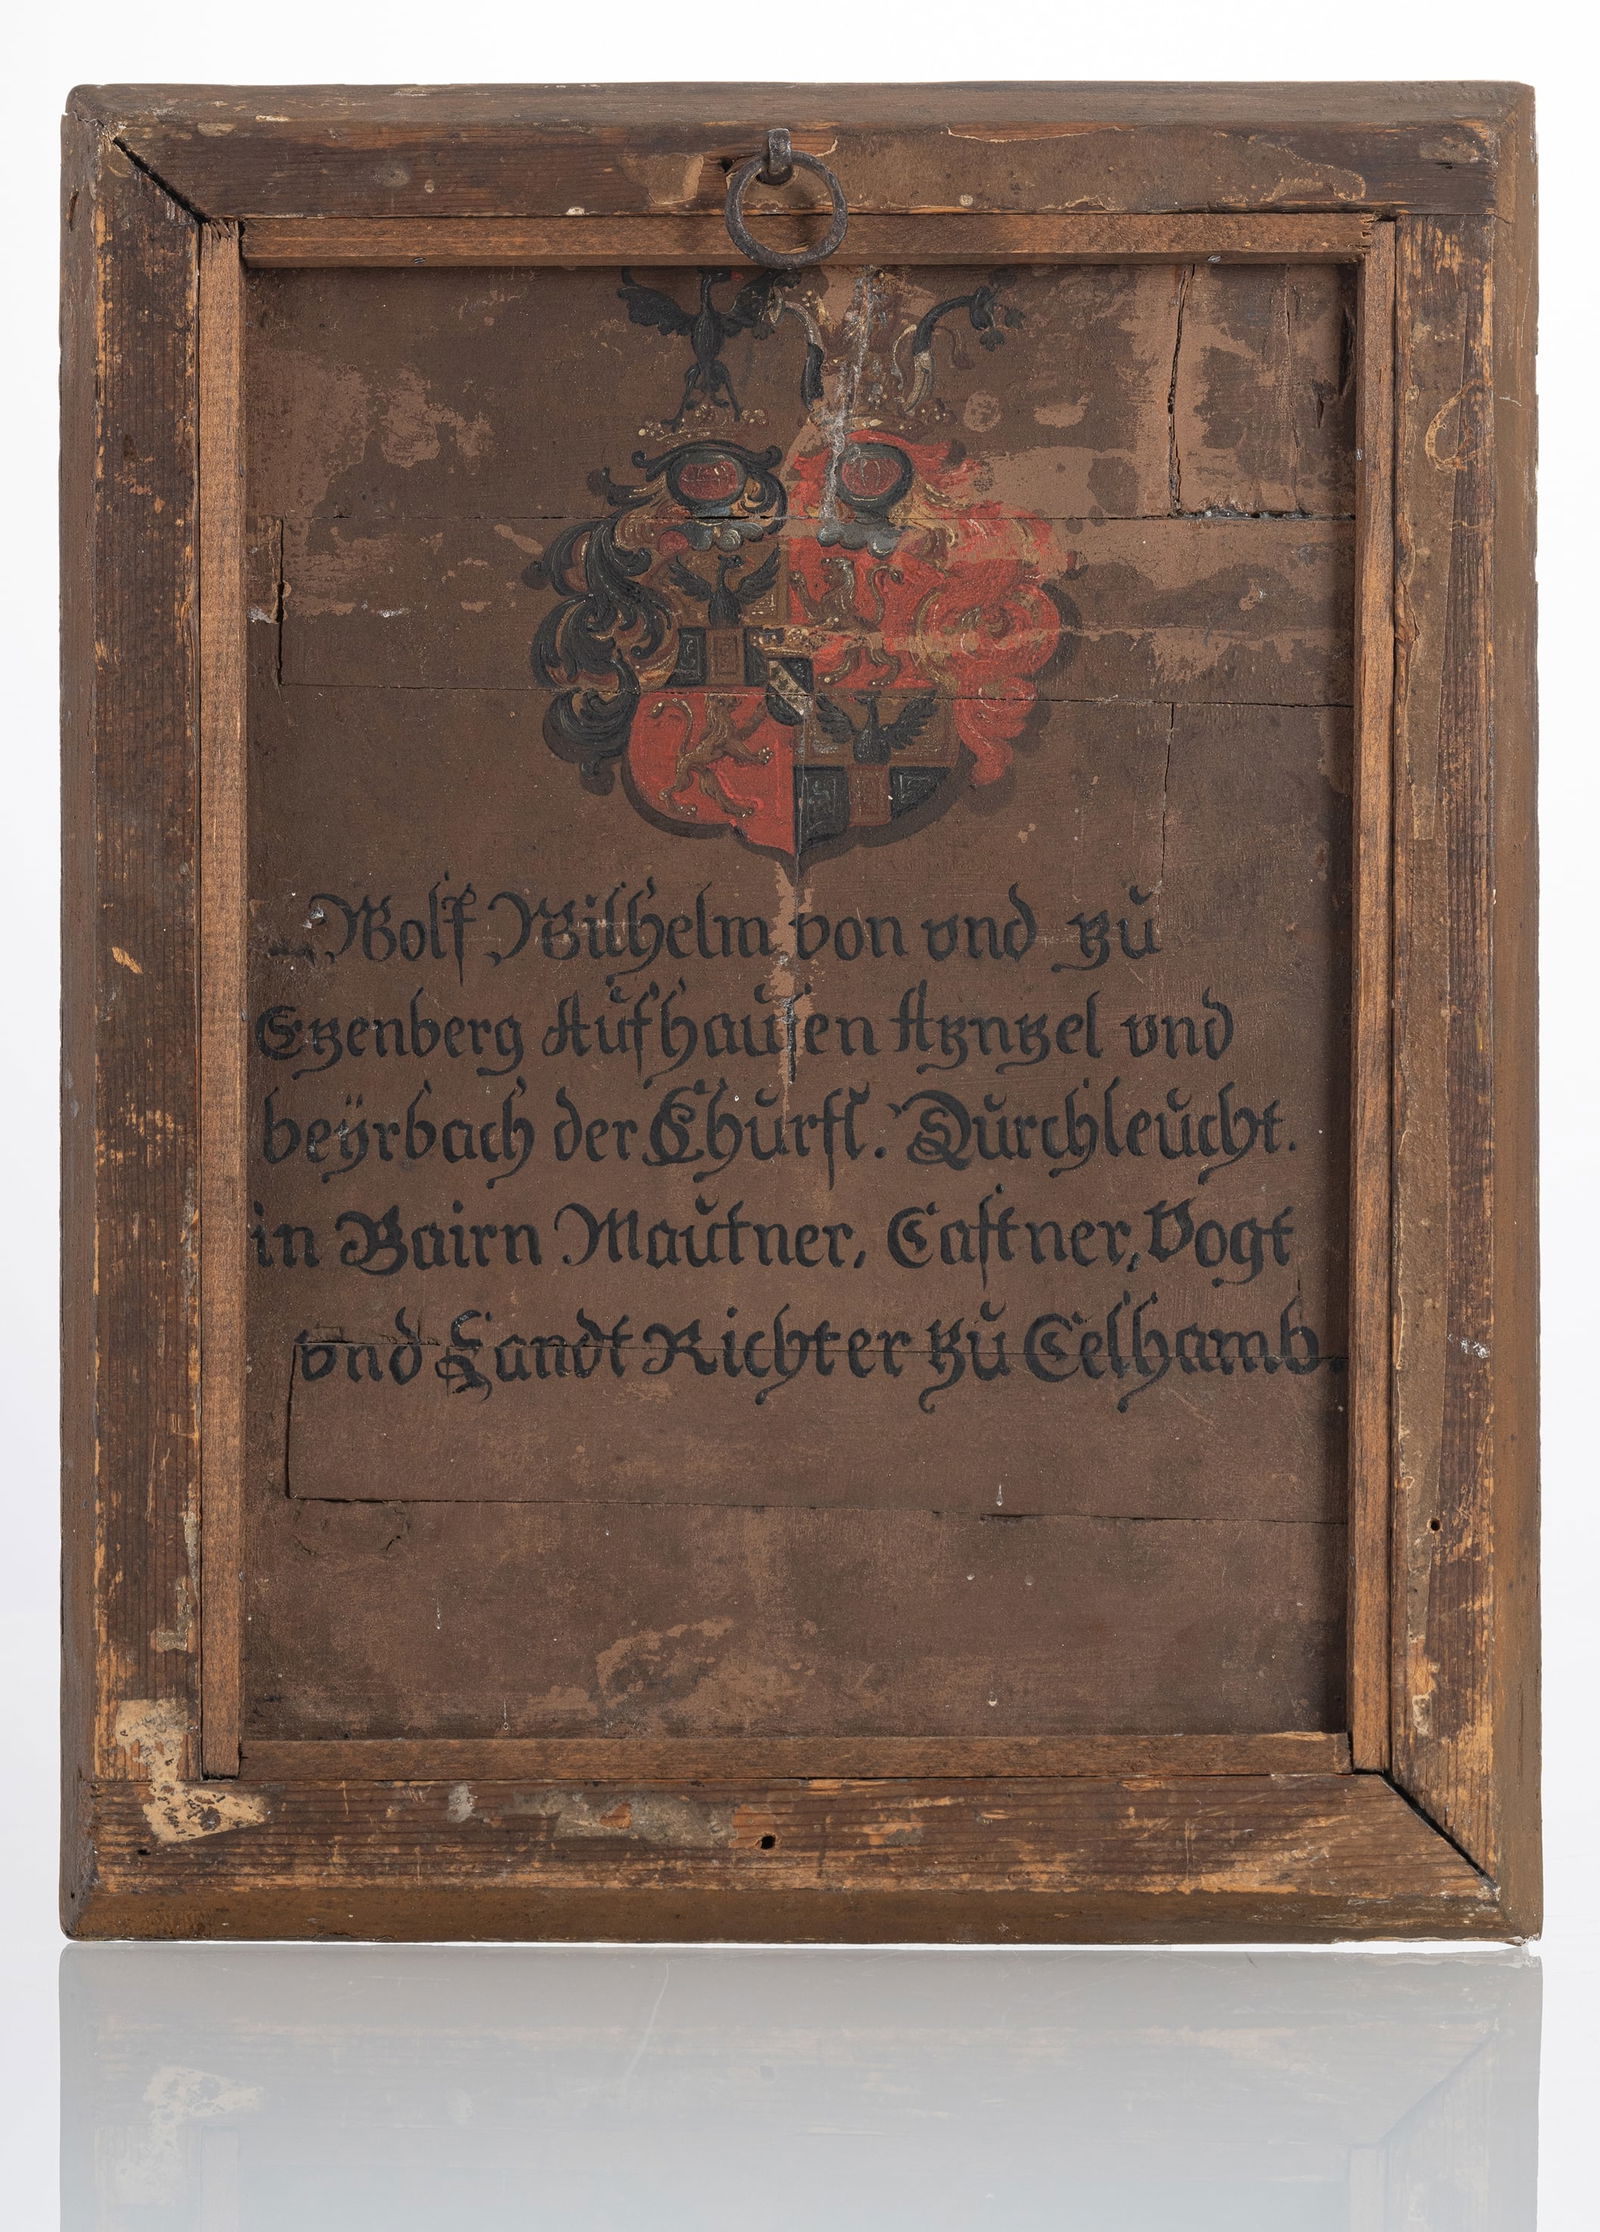 Wolf Wilhelm von vnd zu
Etzenberg Aufhausen Atzntzel vnd
beÿrbach der Churfl. Durchleucht.
in Bairn Mautner, Castner, Vogt
vnd Landt Richter zu Kelhamb.